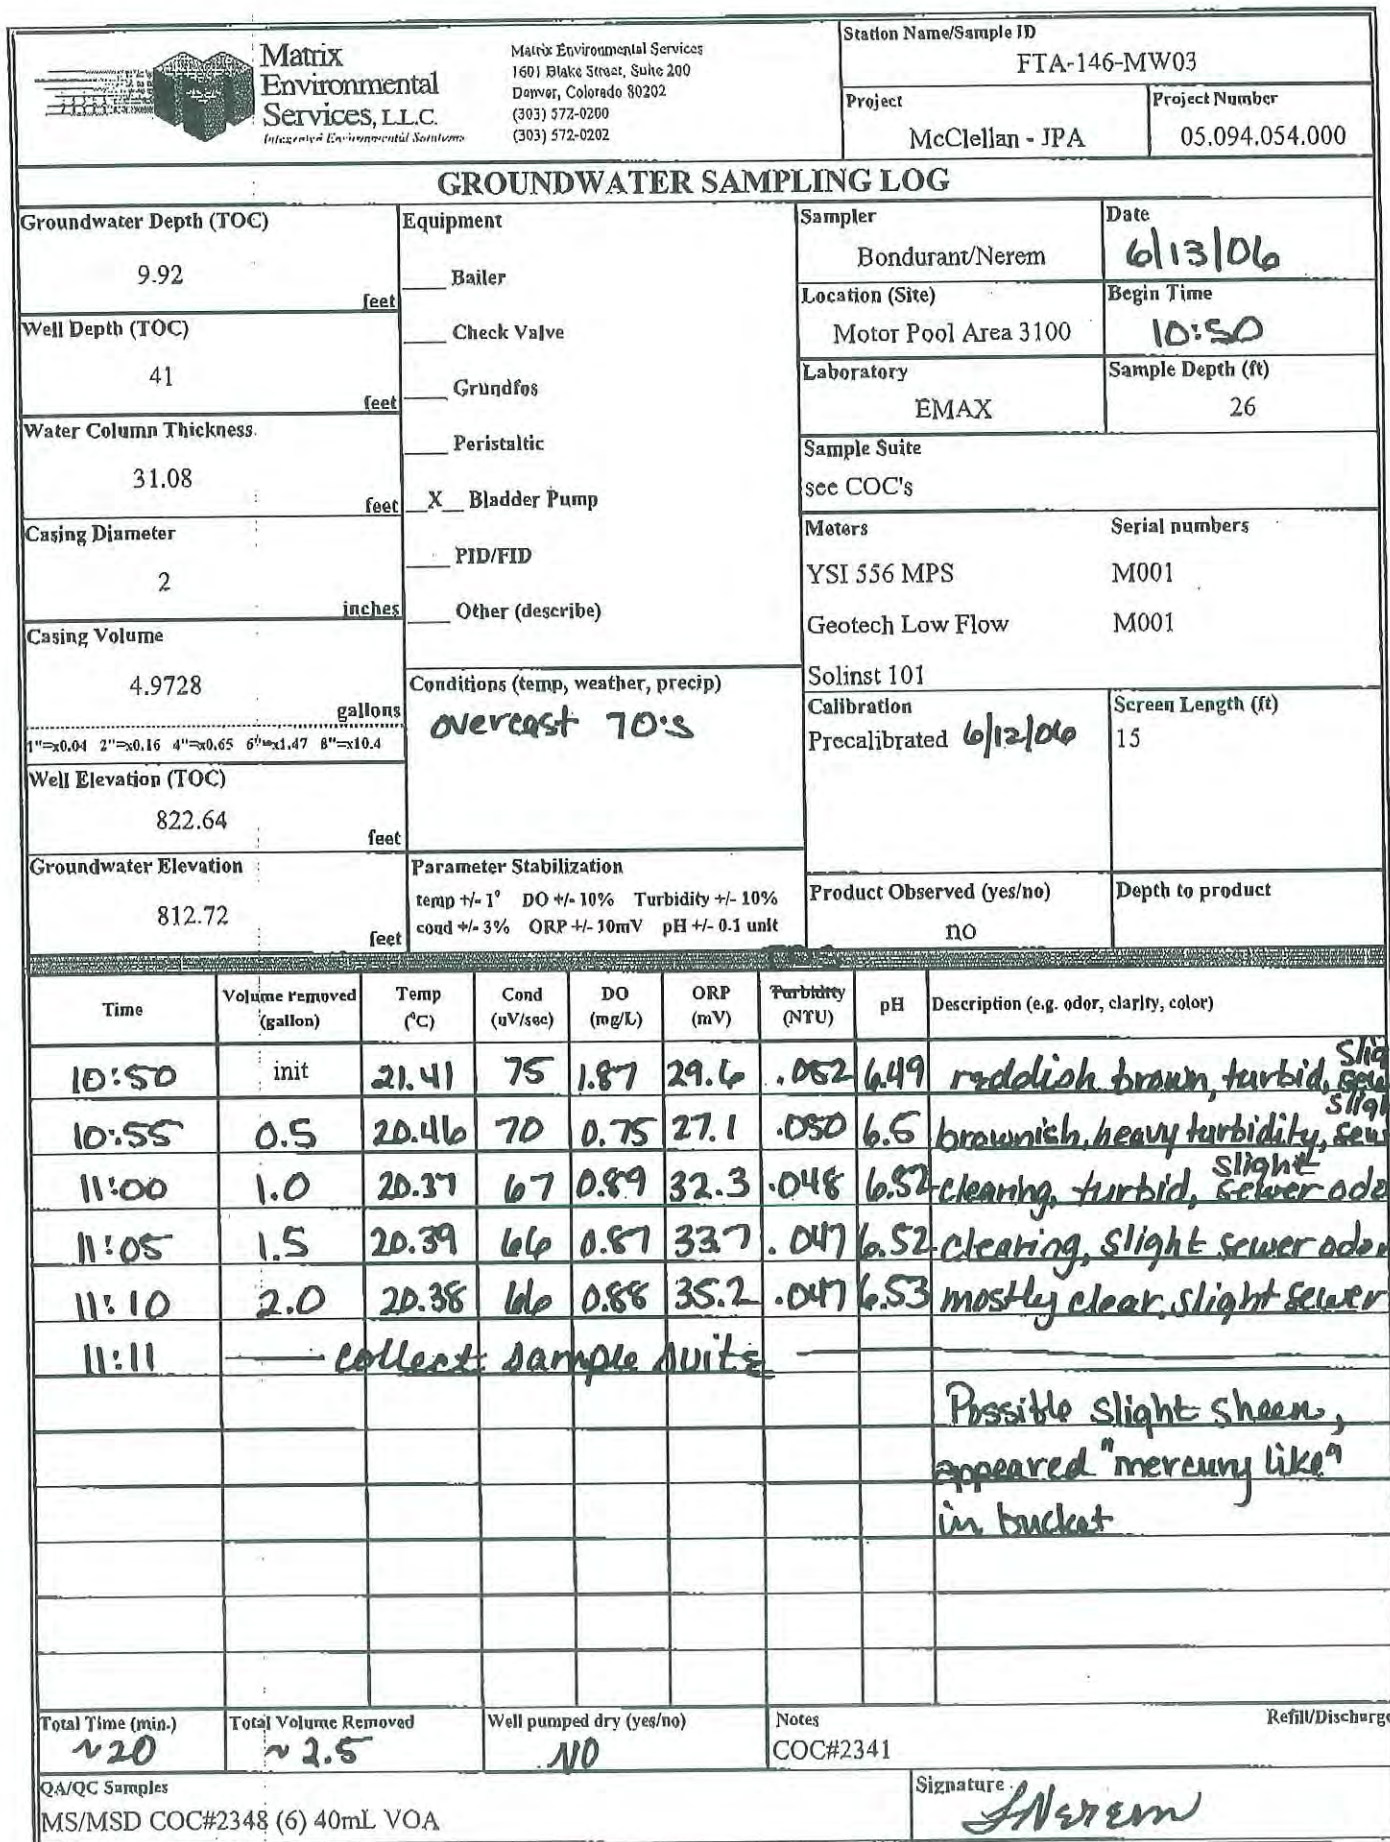 Matrix
Environmental
Services, L.L.C.
Integrated Environmental Solutions
Matrix Environmental Services
1601 Blake Street, Suite 200
Denver, Colorado 80202
(303) 572-0200
(303) 572-0202
Station Name/Sample ID
FTA-146-MW03
Project
McClellan - JPA
Project Number
05.094.054.000
GROUNDWATER SAMPLING LOG
Groundwater Depth (TOC)
9.92
feet
Well Depth (TOC)
41
feet
Water Column Thickness
31.08
feet
Casing Diameter
2
inches
Casing Volume
4.9728
gallons
1"=x0.04 2"=x0.16 4"=x0.65 6"=x1.47 8"=x10.4
Well Elevation (TOC)
822.64
feet
Groundwater Elevation
812.72
feet
Equipment
___ Bailer
___ Check Valve
___ Grundfos
___ Peristaltic
__X__ Bladder Pump
___ PID/FID
___ Other (describe)
Conditions (temp, weather, precip)
overcast 70's
Parameter Stabilization
temp +/- 1° DO +/- 10% Turbidity +/- 10%
cond +/- 3% ORP +/- 10mV pH +/- 0.1 unit
Sampler
Bondurant/Nerem
Date
6/13/06
Location (Site)
Motor Pool Area 3100
Begin Time
10:50
Laboratory
EMAX
Sample Depth (ft)
26
Sample Suite
see COC's
Meters Serial numbers
YSI 556 MPS M001
Geotech Low Flow M001
Solinst 101
Calibration
Precalibrated 6/12/06
Screen Length (ft)
15
Product Observed (yes/no)
no
Depth to product
Time Volume removed (gallon) Temp (°C) Cond (uV/sec) DO (mg/L) ORP (mV) Turbidity (NTU) pH Description (e.g. odor, clarity, color)
10:50 init 21.41 75 1.87 29.6 .052 6.49 reddish brown, turbid, slig sew
10:55 0.5 20.46 70 0.75 27.1 .050 6.5 brownish, heavy turbidity, sligh sew
11:00 1.0 20.37 67 0.89 32.3 .048 6.52 clearing, turbid, slight sewer odo
11:05 1.5 20.39 66 0.87 33.7 .047 6.52 clearing, slight sewer odo
11:10 2.0 20.38 66 0.88 35.2 .047 6.53 mostly clear, slight sewer
11:11 collect sample suite
Possible slight sheen,
appeared "mercury like"
in bucket
Total Time (min.)
~20
Total Volume Removed
~2.5
Well pumped dry (yes/no)
NO
Notes
COC#2341
Refill/Discharge
QA/QC Samples
MS/MSD COC#2348 (6) 40mL VOA
Signature
LNerem